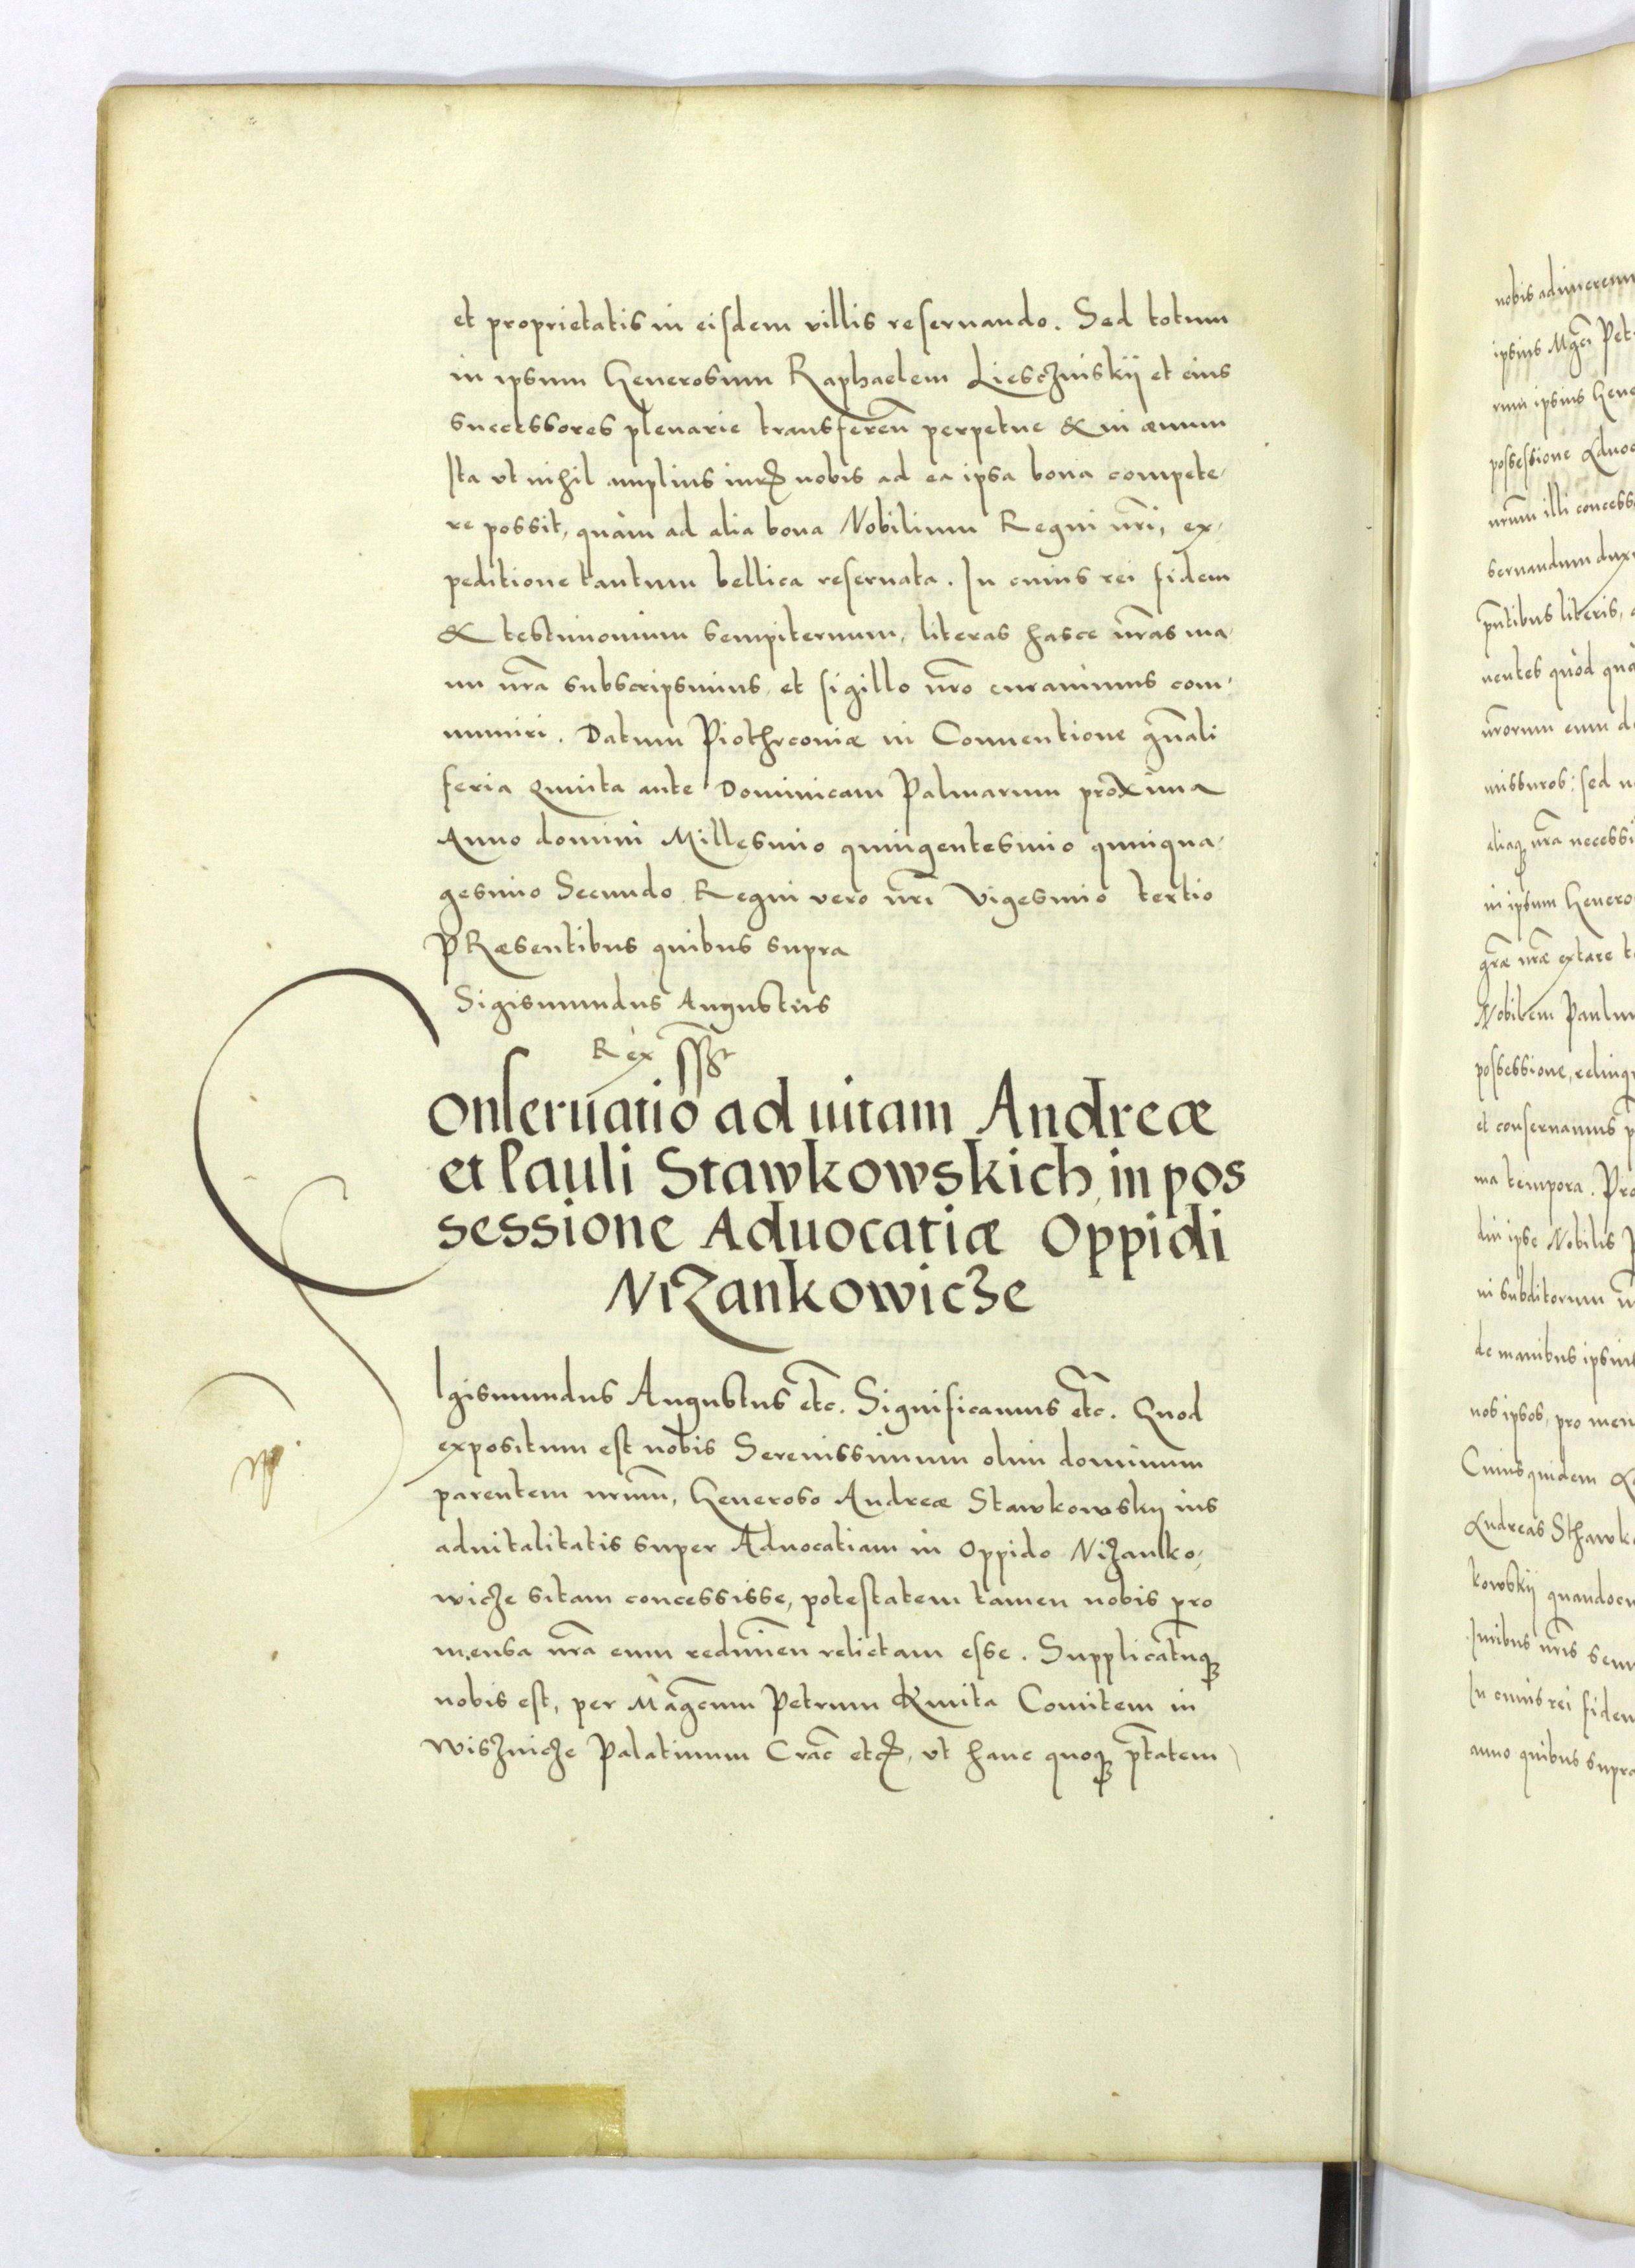 et proprietatis in eisdem villis reseruando. Sed totum
in ipsum Generosum Raphaelem Liesczniskij et eius
successores plenarie transferen̄ perpetue & in æuum
Ita vt nihil amplius iur nobis ad ea ipsa bona compete,
re possit, quàm ad alia bona Nobilium Regni nr̄i, ex,
peditione tantum bellica reseruata. In cuius rei fidem
& testimonium sempiternum, literas hasce nr̄as ma,
nu nr̄a subscripsimus, et sigillo nr̄o curauimus com,
muniri. Datum Piothrcouiæ in Conuentione gn̄ali
feria Quinta ante Dominicam Palmarum proxima
Anno domini Millesimo quingentesimo quinqua,
gesimo Secundo Regni vero nr̄i Vigesimo tertio
PRæsentibus quibus supra
Sigismundus Augustus
Rex sst
Conseruatio ad uitam Andreæ
et Pauli Stawkowskich, in pos
sessione Aduocatiæ Oppidi
Nizankowicze
Igismundus Augustus etc̄. Significamus etc̄. Quod
expositum est nobis Serenissimum olim dominum
parentem nrūm, Generoso Andreæ Stawkowskij ius
aduitalitatis super Aduocatiam in Oppido Nizanko,
wicze sitam concessisse, potestatem tamen nobis pro
mensa nr̄a eum redimen̄ relictam esse. Supplicatūq;
nobis est, per Magc̄um Petrum Kmita Comitem in
Wisznicze Palatinum Crac̄ etc, vt hanc quoq; ptātem
nobis adimerem
ipsius Mgc̄i Pet
rum ipsius Gene
possessione Aduoc
nrūm illi concess
seruandum dux
pn̄tibus literis,
uentes quòd qua
nr̄orum eum de
missuros: sed
aliaq; nr̄a necessi
in ipsum Genero
grāe nrāe extare
Nobilem Paulum
possessione, relinq
et conseruamus p
ma tempora. Pro
diu ipse Nobilis P
ni subditorum
de manibus ipsius
nos ipsos, pro men
Cuius quidem
Andreas Sthawko
kowskij quandocu
Iuribus nr̄is sem
In cuius rei fidem
anno quibus supra